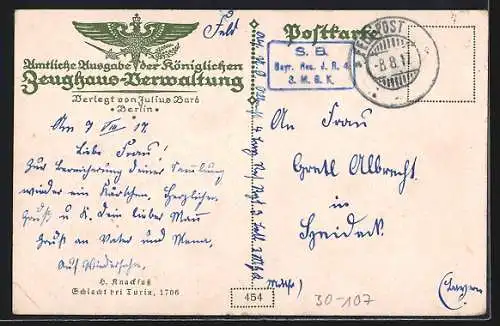 Feld
Amtliche Ausgabe der Königlichen
Zeughaus-Verwaltung
Verlegt von Julius Bard
Berlin
Am 9 VIII 17.
Liebe Frau!
Zur Bereicherung Deiner Sammlung
wieder ein Kärtchen. Herzlichen
Gruß u. K. Dein lieber Mann
Gruß an Vater und Mama,
Auf Wiedersehn,
H. Knackfuß
Schlacht bei Turin, 1706
Postkarte
S. B.
Bayr. Res. J. R. 4
3. M. G. K.
FELDPOST
-8.8.17
An Frau
Gretl Albrecht
in
Heideck
(Bayern
454
30-107